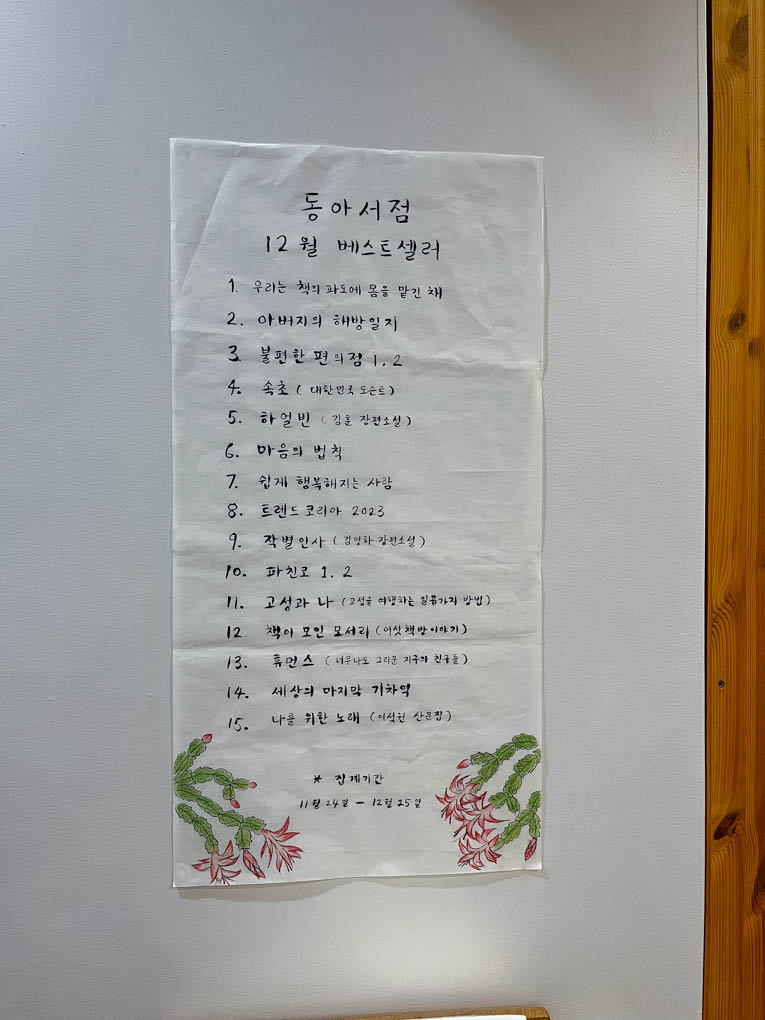 동아서점
12월 베스트셀러
1. 우리는 책의 파도에 몸을 맡긴 채
2. 아버지의 해방일지
3. 불편한 편의점 1, 2
4. 속초 ( 대한민국 도슨트 )
5. 하얼빈 ( 김훈 장편소설 )
6. 마음의 법칙
7. 쉽게 행복해지는 사람
8. 트렌드 코리아 2023
9. 작별인사 ( 김영하 장편소설 )
10. 파친코 1, 2
11. 고성과 나 (고성을 여행하는 일곱가지 방법)
12. 책이 모인 모서리 (여섯 책방 이야기)
13. 휴먼스 ( 너무나도 그리운 지구의 친구들 )
14. 세상의 마지막 기차역
15. 나를 위한 노래 (이석원 산문집)
* 집계기간
11월 24일 - 12월 25일